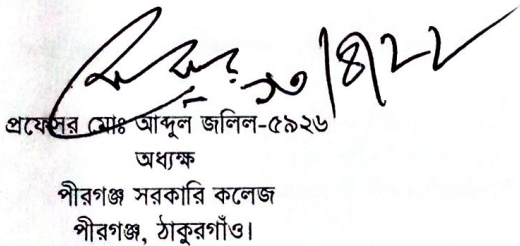 ১৩/৪/২২
প্রফেসর মোঃ আব্দুল জলিল-৫৯২৬
অধ্যক্ষ
পীরগঞ্জ সরকারি কলেজ
পীরগঞ্জ, ঠাকুরগাঁও।